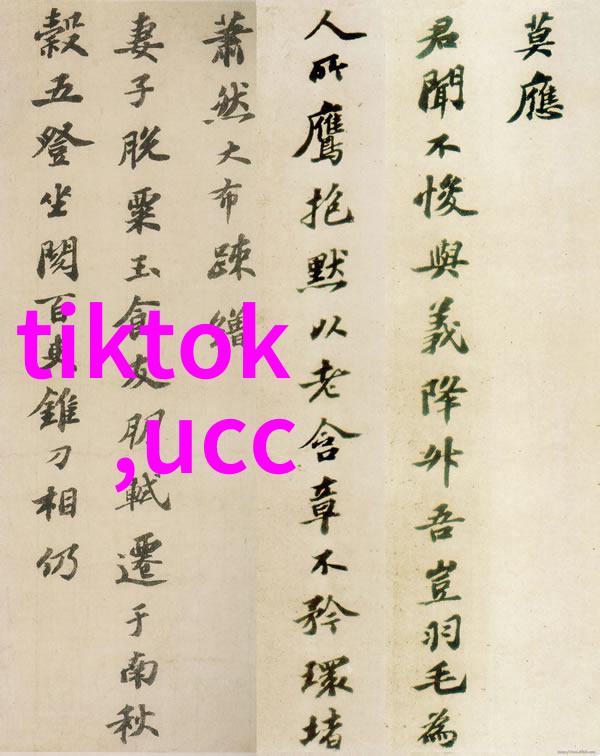 莫應
君聞不悛與義降升吾豈羽毛為
人所鷹抱默以老含章不矜環堵
蕭然大布疎繒
妻子脫粟玉食友朋軾遷于南秋
穀五登坐閱百吏錐刀相仍
tiktok
,ucc